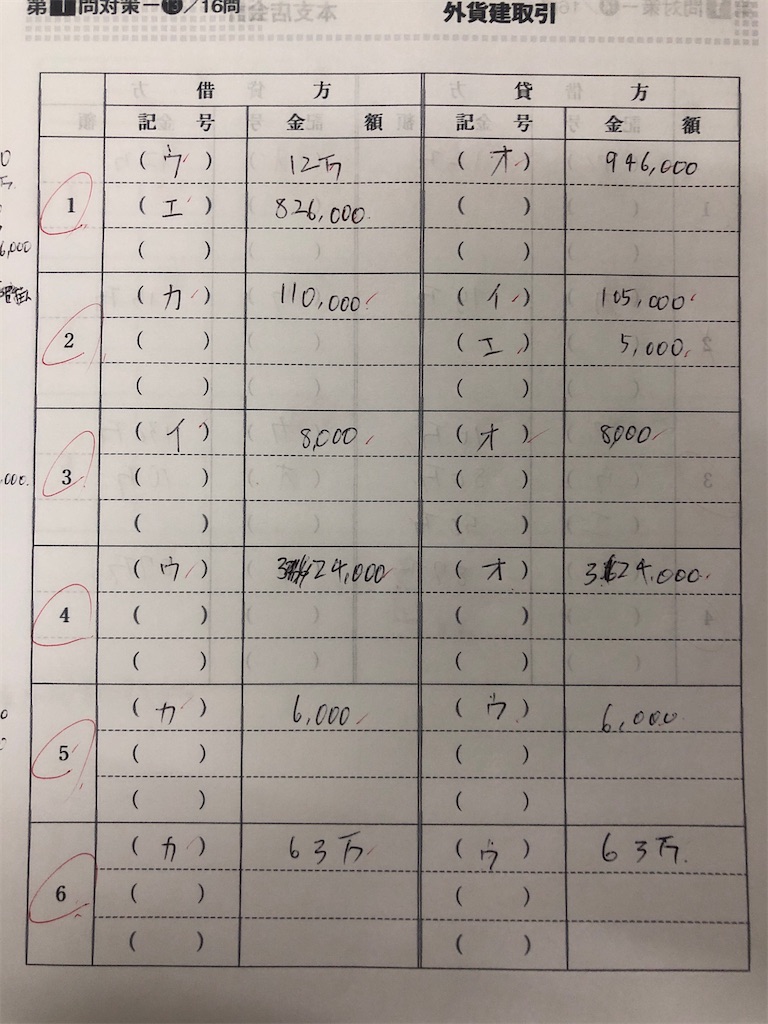 第1問対策－⓭／16問 外貨建取引
借 方 貸 方
記 号 金 額 記 号 金 額
1 （ウ） 12万 （オ） 946,000
（エ） 826,000 （ ）
（ ） （ ）
2 （カ） 110,000 （イ） 105,000
（ ） （エ） 5,000
（ ） （ ）
3 （イ） 8,000 （オ） 8,000
（ ） （ ）
（ ） （ ）
4 （ウ） 24,000 （オ） 24,000
（ ） （ ）
（ ） （ ）
5 （カ） 6,000 （ウ） 6,000
（ ） （ ）
（ ） （ ）
6 （カ） 63万 （ウ） 63万
（ ） （ ）
（ ） （ ）